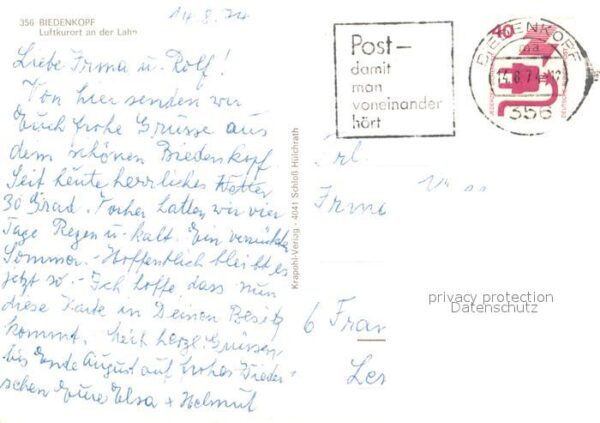 14.8.74
356 BIEDENKOPF
Luftkurort an der Lahn
Liebe Irma u. Rolf!
Von hier senden wir
Euch frohe Grüsse aus
dem schönen Biedenkopf.
Seit heute herrliches Wetter
30 Grad. Vorher hatten wir vier
Tage Regen u. kalt. Ein verrückter
Sommer. - Hoffentlich bleibt es
jetzt so. - Ich hoffe dass nun
diese Karte in Deinen Besitz
kommt. Mit herzl. Grüssen
bis Ende August auf frohes Wieder-
sehen Eure Elsa + Helmut
Krapohl-Verlag · 4041 Schloß Hülchrath
Post-
damit
man
voneinander
hört
BIEDENKOPF
14.8.74
356
40
Frl.
Irma
6 Fran
privacy protection
Datenschutz